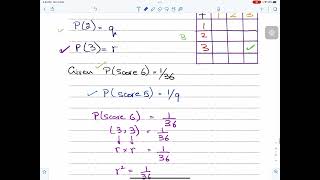 + 1 2 3
P(2) = q
1
B 2
✓ P(3) = r
3 ✓
Given P(score 6) = 1/36
✓ P(score 5) = 1/9
P(score 6) = 1/36
(3, 3) = 1/36
↓ ↓
r × r = 1/36
r² = 1/36